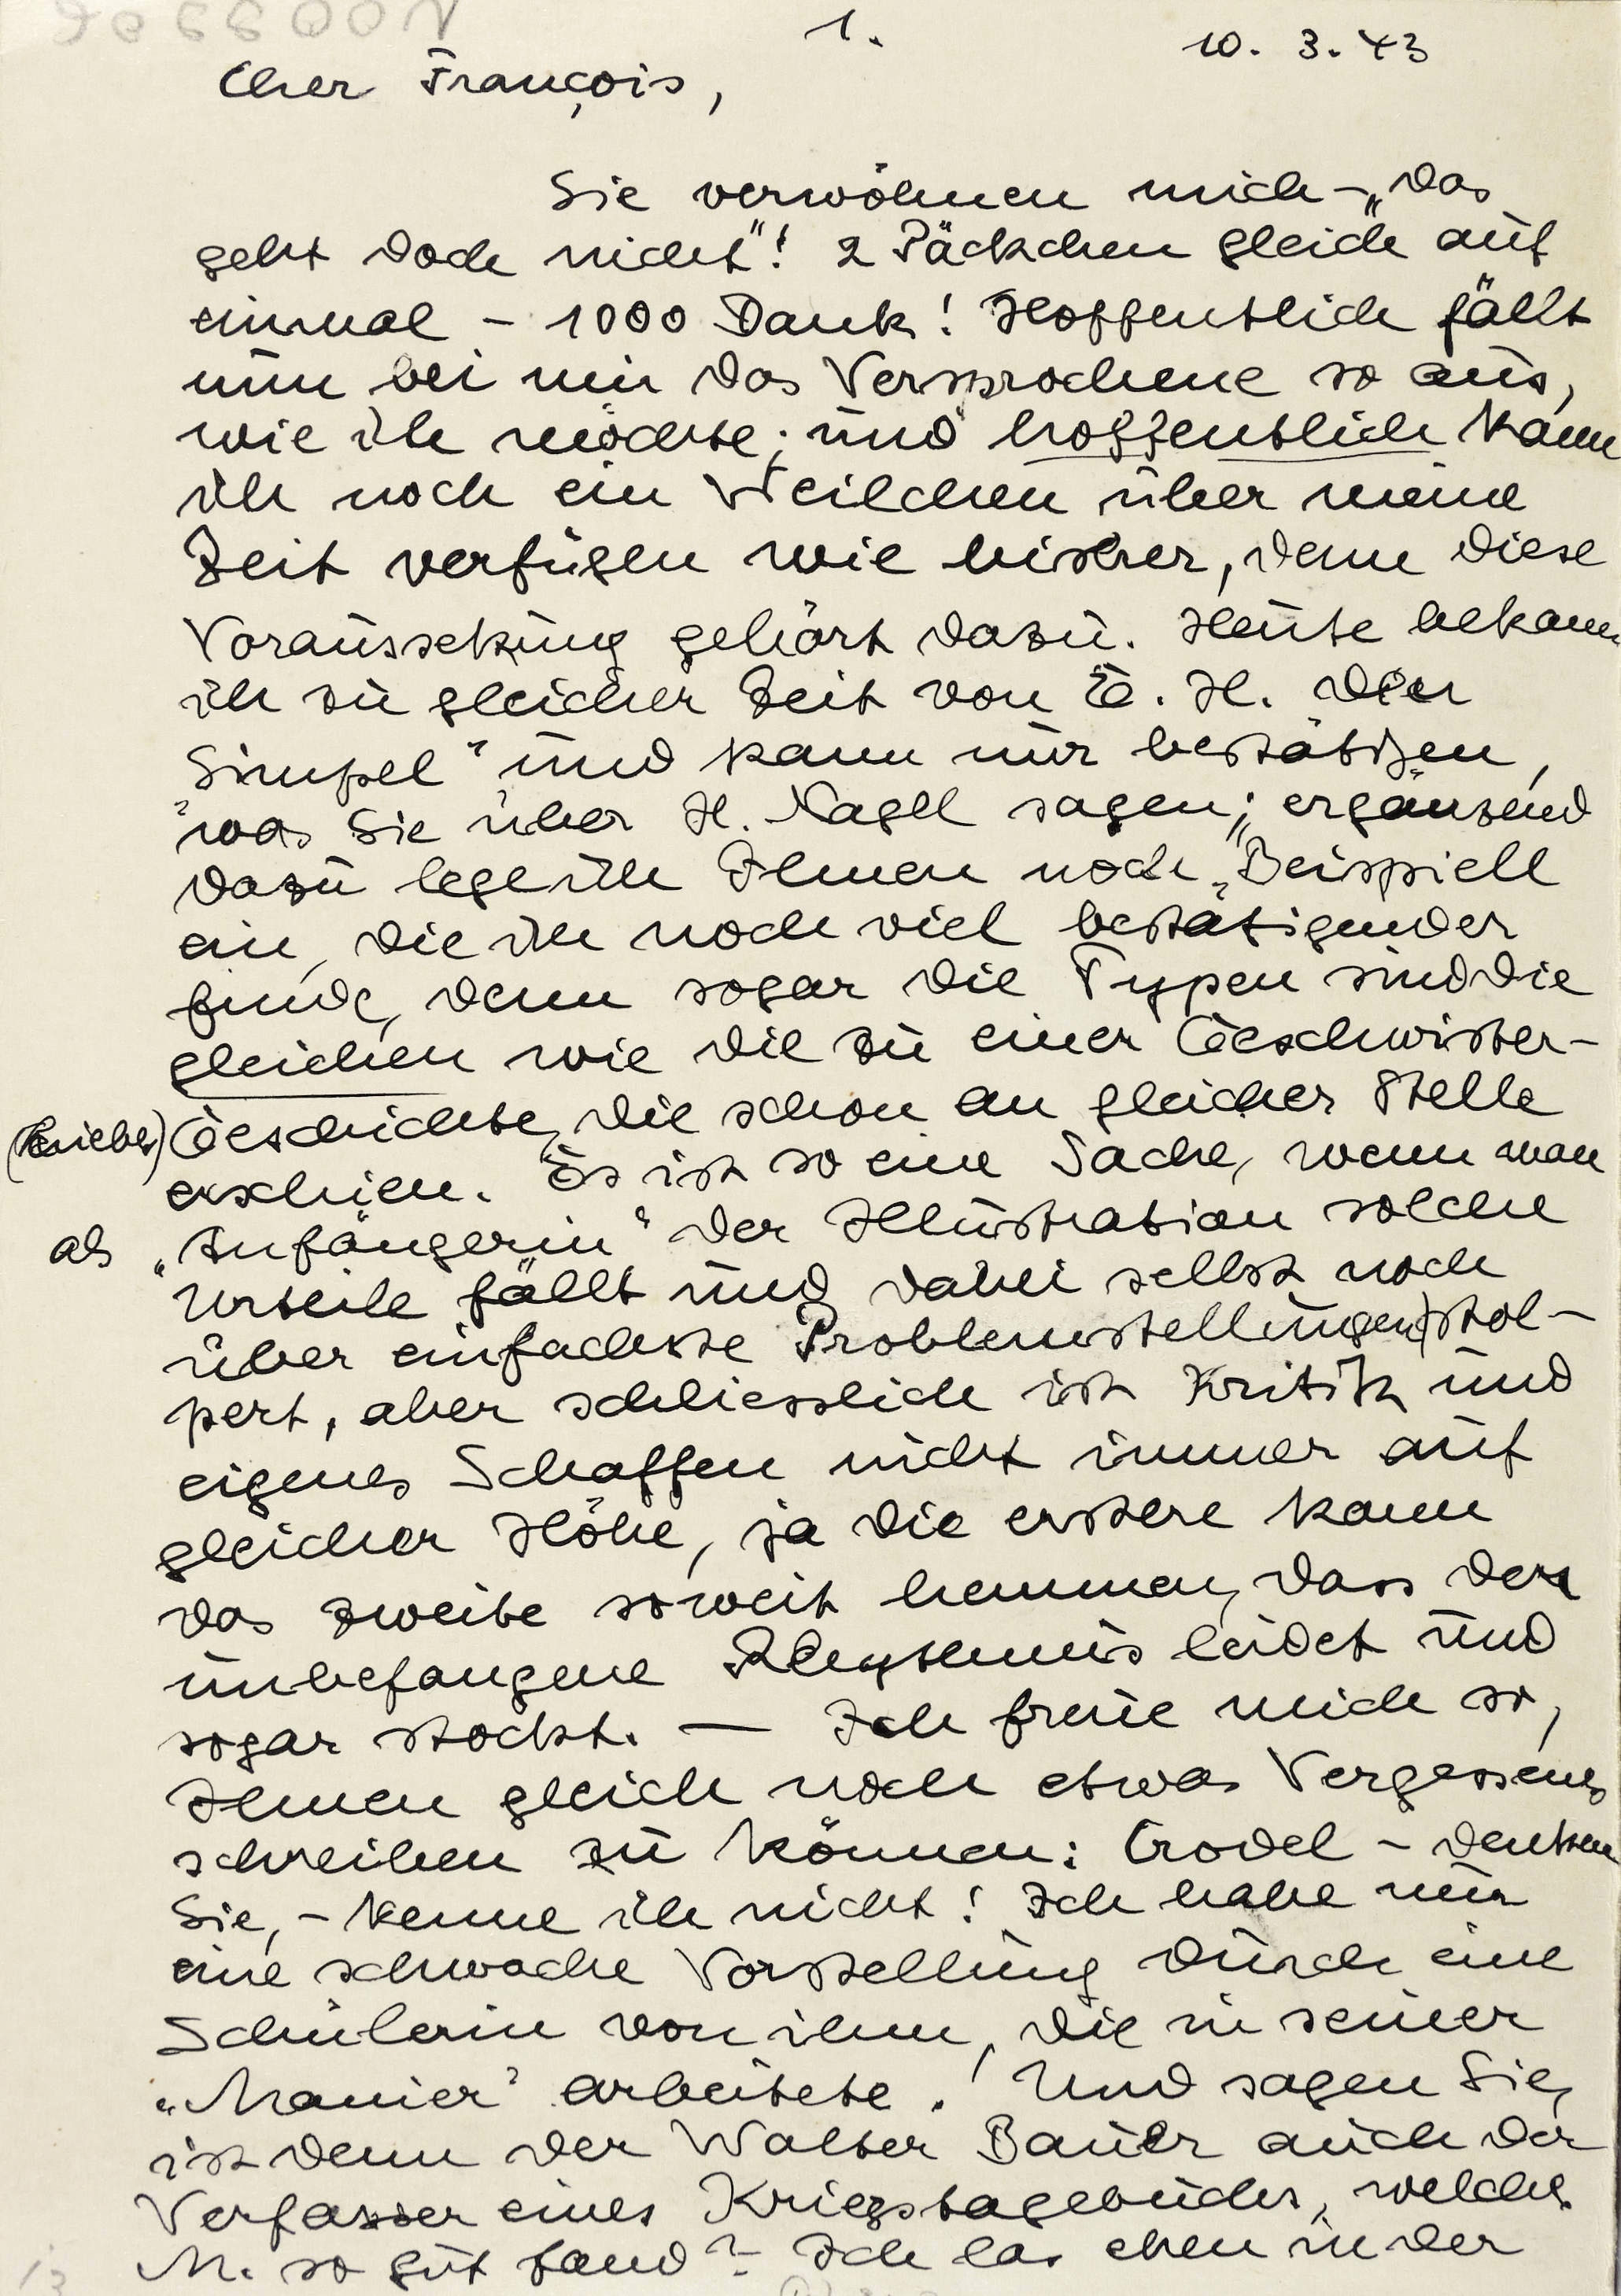 1.
10. 3. 43
Cher François,
Sie verwöhnen mich – „das
geht doch nicht“! 2 Päckchen gleich auf
einmal – 1000 Dank! Hoffentlich fällt
nun bei mir das Versprochene so aus,
wie ich möchte; und hoffentlich kann
ich noch ein Weilchen über meine
Zeit verfügen wie bisher, denn diese
Voraussetzung gehört dazu. Heute bekam
ich zu gleicher Zeit von E. H. den
„Simpel“ und kann nur bestätigen,
was Sie über H. Nagel sagen; „ergänzend“
dazu lege ich Ihnen noch „Beispiele“
ein, die ich noch viel bestätigender
finde, denn sogar die Typen sind die
gleichen wie die zu einer Geschwister-
(liebes) Geschichte, die schon an gleicher Stelle
erschien. Es ist so eine Sache, wenn man
als „Anfängerin“ der Illustration solche
Urteile fällt und dabei selbst noch
über einfachste Problemstellungen stol-
pert, aber schliesslich ist Kritik und
eigenes Schaffen nicht immer auf
gleicher Höhe, ja die erstere kann
das zweite soweit hemmen, dass der
unbefangene Rhythmus leidet und
sogar stockt. — Ich freue mich so,
Ihnen gleich noch etwas Vergessenes
schreiben zu können: Crodel – denken
Sie, – kenne ich nicht! Ich habe nur
eine schwache Vorstellung durch eine
Schülerin von ihm, die in seiner
„Manier“ arbeitete. Und sagen Sie,
ist denn der Walter Bauer auch der
Verfasser eines Kriegstagebuches, welches
M. so gut fand? – Ich las eben in der